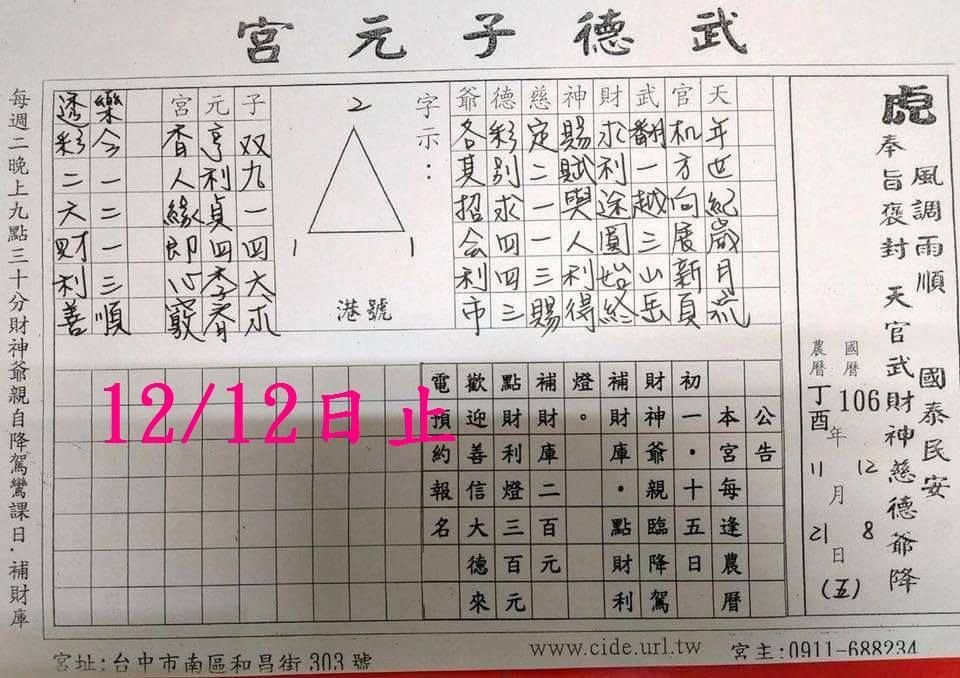 武德子元宮
虎
風調雨順 國泰民安
奉旨褒封 天官武財神慈德爺降
國曆 106年12月8日
農曆 丁酉年11月21日(五)
天年世紀歲月流
官机方向展新頁
武翻一越三山岳
財求利途圓始終
神賜賦與人利得
慈定二一一三賜
德彩別求四四三
爺各其招会利市
字示:
2
1 1
港號
子双九一四大求
元亨利貞四季春
宮香人緣即心竅
樂今一二一三順
透彩二財利善
公告
本宮每逢農曆
初一·十五日
財神爺親臨降駕
補財庫·點財利
燈。
補財庫二百元
點財利燈三百元
歡迎善信大德來
電預約報名
12/12日止
每週二晚上九點三十分財神爺親自降駕鸞課日·補財庫
www.cide.url.tw
宮址:台中市南區和昌街303號
宮主:0911-688234